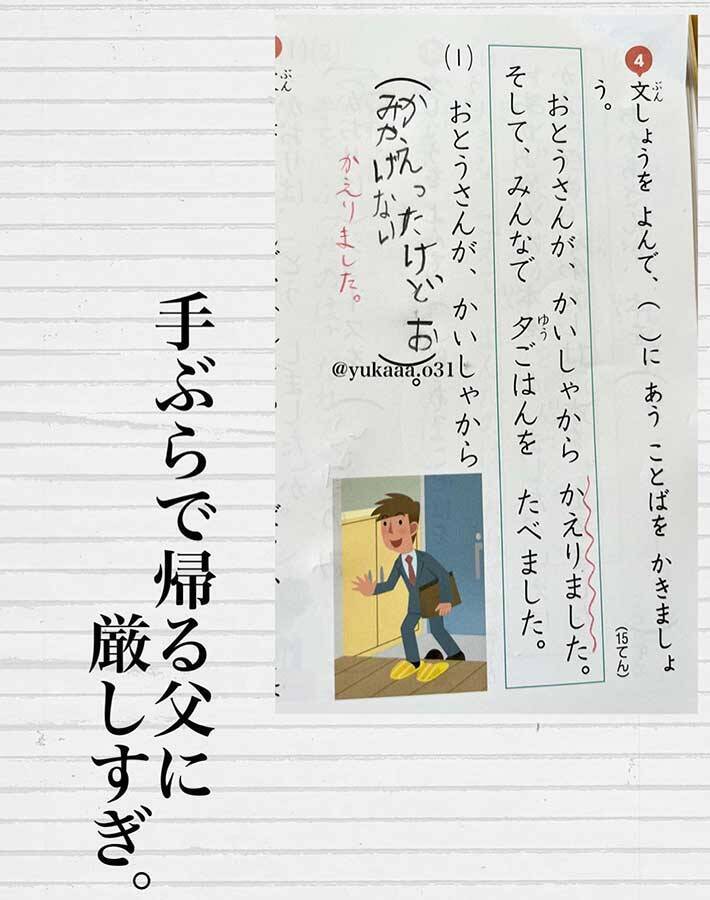 4 文しょうを よんで、( )に あう ことばを かきましょ
う。
(15てん)
おとうさんが、かいしゃから かえりました。
そして、みんなで 夕ごはんを たべました。
(1) おとうさんが、かいしゃから
(かえったけど お
みやげない)。
かえりました。
@yukaaa.o31
手ぶらで帰る父に
厳しすぎ。